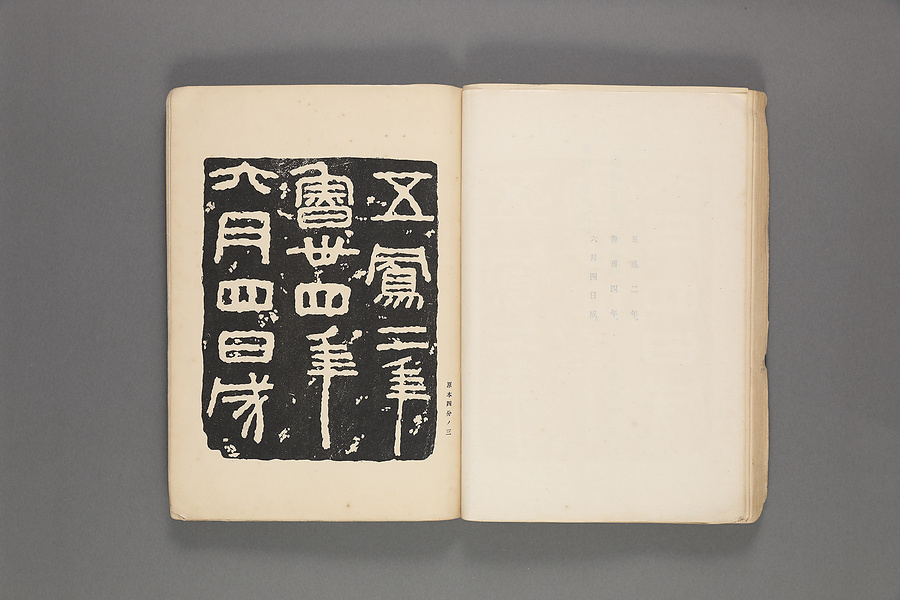 五鳳二年、
魯卅四年、
六月四日成。
原本四分ノ三
五鳳二年
魯卅四年
六月四日成